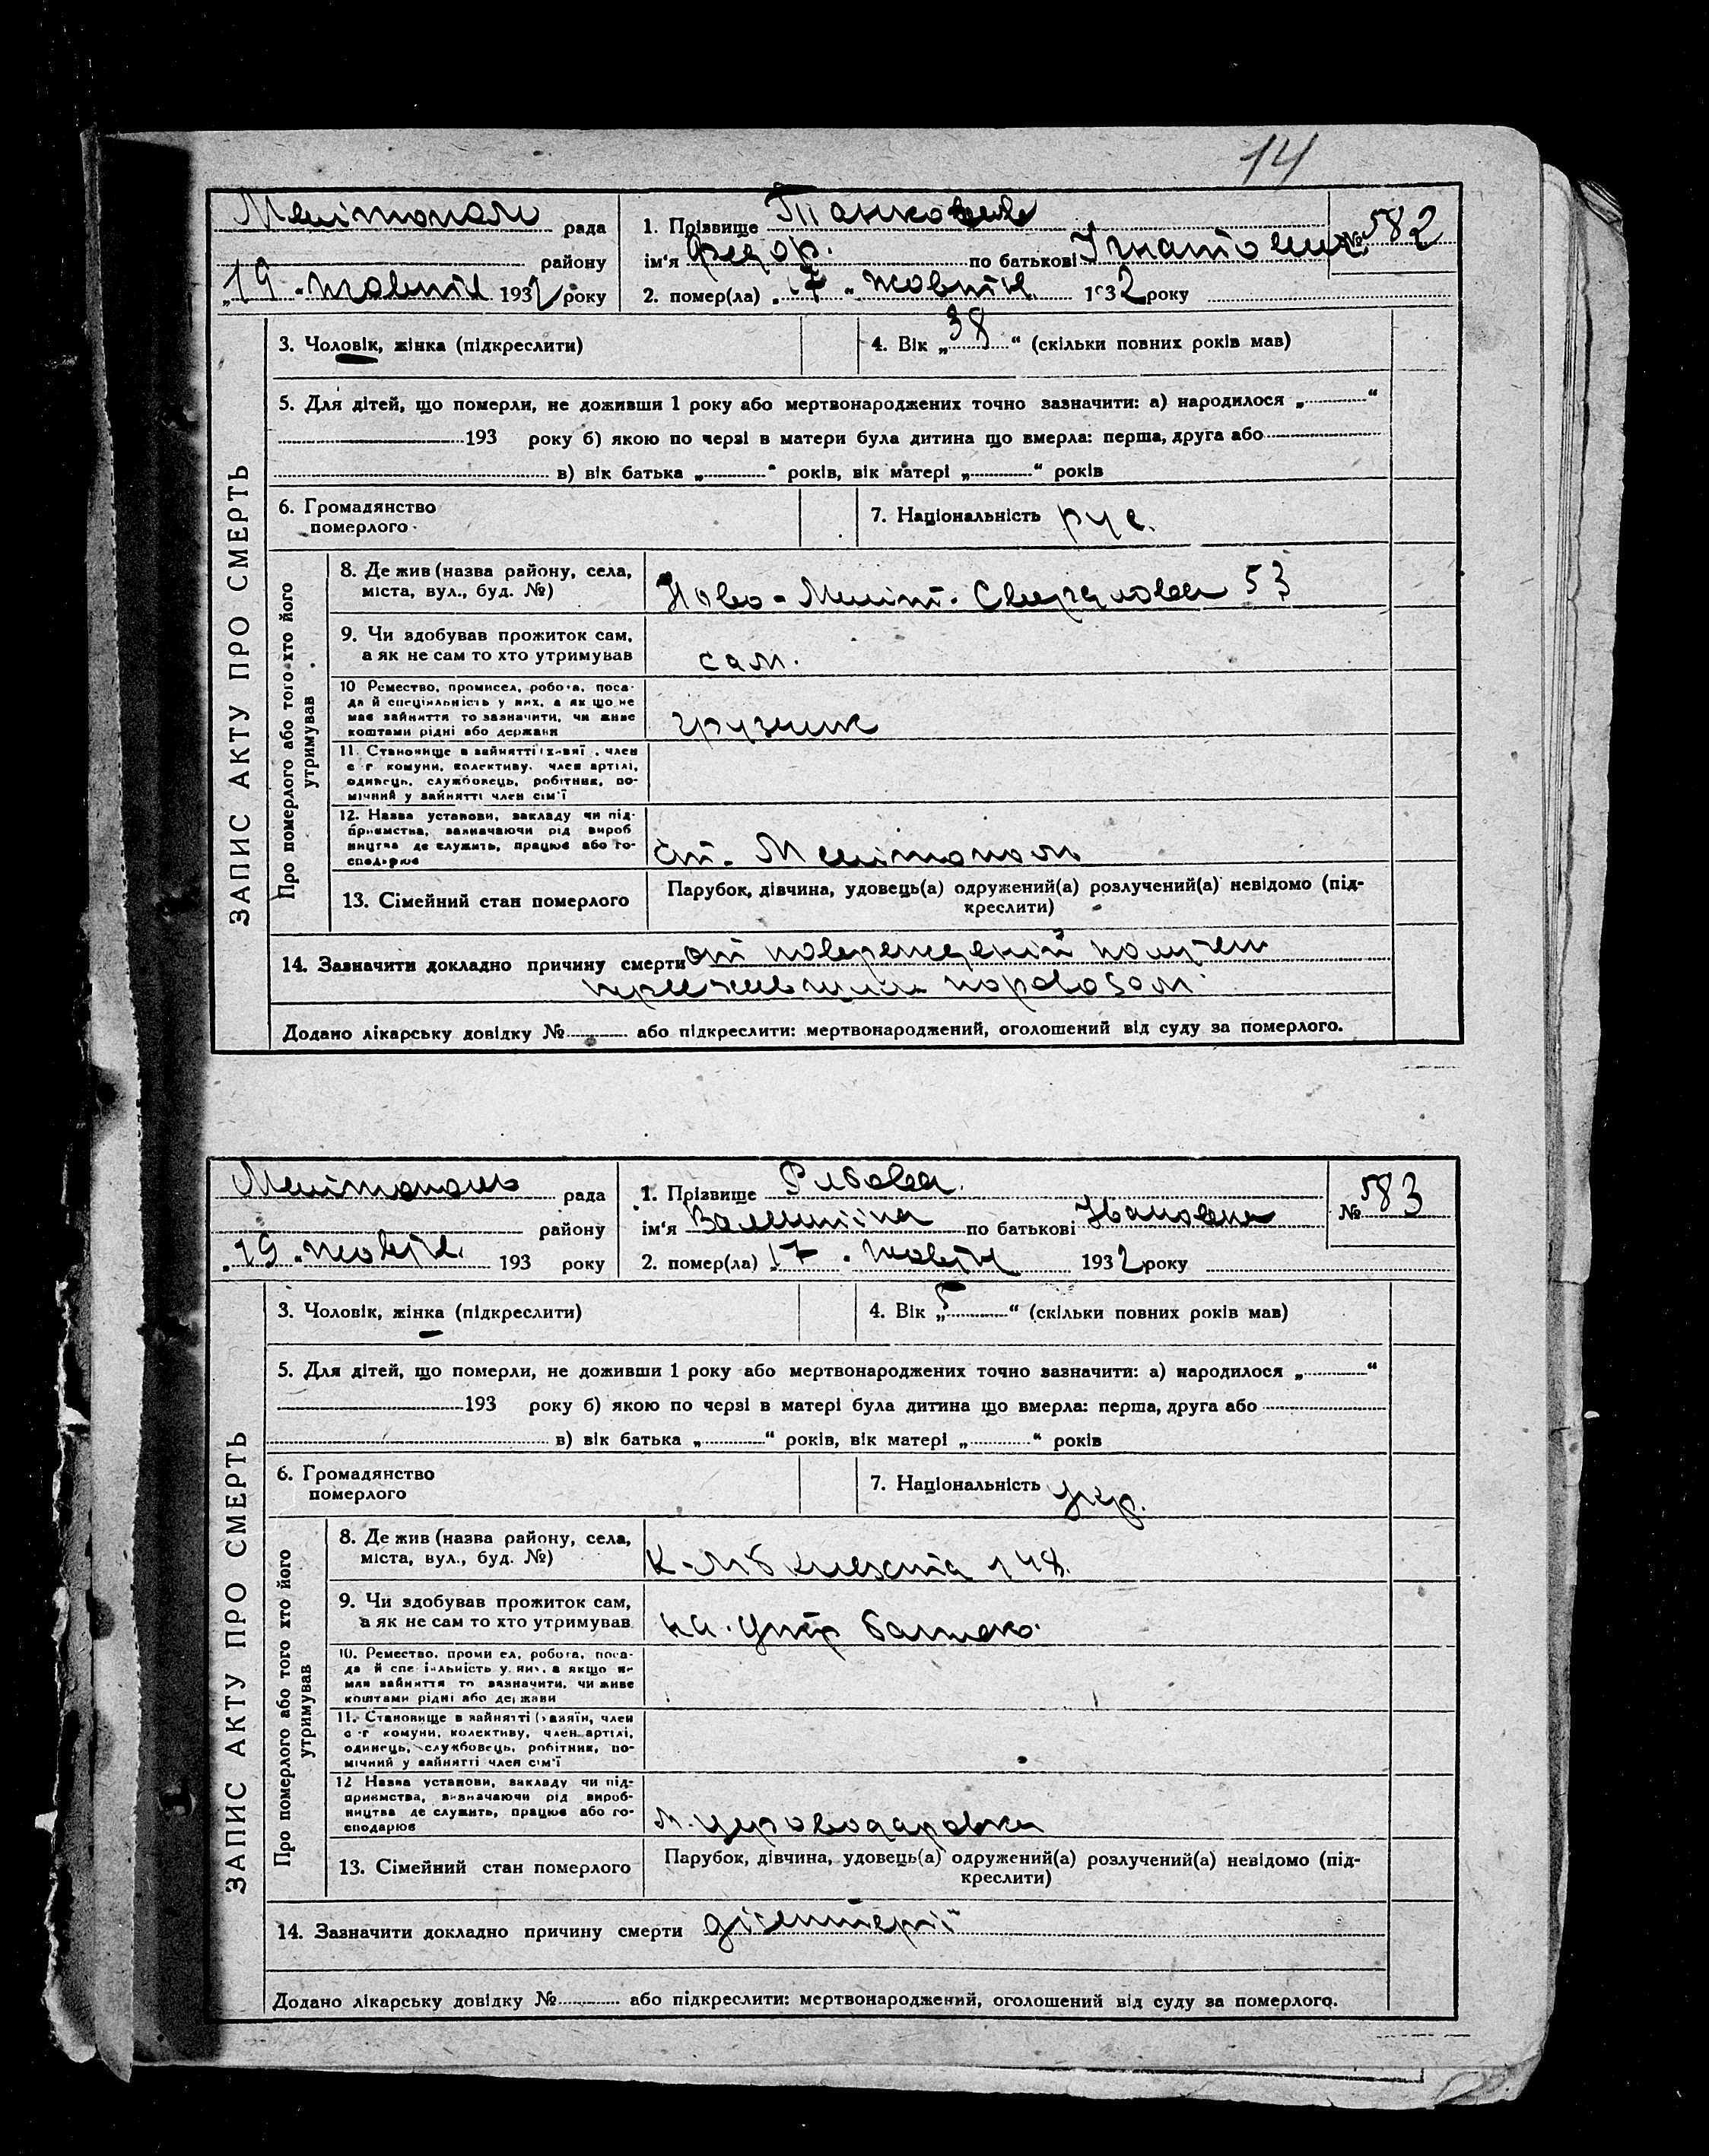 14
Мелітополь рада
району
"19" жовтня 1932 року
1. Прізвище
ім'я Федор. по батькові Ігнатович
№ 582
2. помер(ла) "17" жовтня 1932 року
ЗАПИС АКТУ ПРО СМЕРТЬ
3. Чоловік, жінка (підкреслити)
4. Вік „38“ (скільки повних років мав)
5. Для дітей, що померли, не доживши 1 року або мертвонароджених точно зазначити: а) народилося „ “
193 року б) якою по черзі в матери була дитина що вмерла: перша, друга або
в) вік батька „ “ років, вік матері „ “ років
6. Громадянство
померлого
7. Національність рус.
Про померлого або того хто його
утримував
8. Де жив (назва району, села,
міста, вул., буд. №)
Ново-Меліт. 53
9. Чи здобував прожиток сам,
а як не сам то хто утримував
сам.
10 Ремество, промисел, робота, поса-
да й спеціяльність у них, а як що не
має зайняття то зазначити, чи живе
коштами рідні або держави
грузчик
11. Становище в зайнятті (хазяї , член
с г комуни, колективу, член артілі,
одинець, службовець, робітник, по-
мічний у зайнятті член сім'ї
12. Назва установи, закладу чи під-
приємства, зазначаючи рід вироб
ництва де служить, працює або го-
сподарює
ст. Мелітополь
13. Сімейний стан померлого
Парубок, дівчина, удовець(а) одружений(а) розлучений(а) невідомо (під-
креслити)
14. Зазначити докладно причину смерти от повреждений получен
паровозом
Додано лікарську довідку № або підкреслити: мертвонароджений, оголошений від суду за померлого.
Мелітополь рада
району
"19" жовтн. 193 року
1. Прізвище
ім'я Валентіна по батькові Івановна
№ 583
2. помер(ла) 17 " жовтн 1932 року
ЗАПИС АКТУ ПРО СМЕРТЬ
3. Чоловік, жінка (підкреслити)
4. Вік „5“ (скільки повних років мав)
5. Для дітей, що померли, не доживши 1 року або мертвонароджених точно зазначити: а) народилося „ “
193 року б) якою по черзі в матері була дитина що вмерла: перша, друга або
в) вік батька „ “ років, вік матері „ “ років
6. Громадянство
померлого
7. Національність укр.
Про померлого або того хто його
утримував
8. Де жив (назва району, села,
міста, вул., буд. №)
К-Лібкнехта 148.
9. Чи здобував прожиток сам,
а як не сам то хто утримував
на. утр батько.
10. Ремество, проми ел, робота, поса-
да й спе іяльність у них, а якщо не
має зайняття то зазначити, чи живе
коштами рідні або держави
11. Становище в зайнятті (хазяїн, член
с г комуни, колективу, член артілі,
одинець, службовець, робітник, по-
мічний у зайнятті член сім'ї
12 Назва установи, закладу чи під-
приємства, визначаючи рід вироб-
ництва де служить, працює або го-
сподарює
13. Сімейний стан померлого
Парубок, дівчина, удовець(а) одружений(а) розлучений(а) невідомо (під-
креслити)
14. Зазначити докладно причину смерти дісентерії
Додано лікарську довідку № або підкреслити: мертвонароджений, оголошений від суду за померлого.